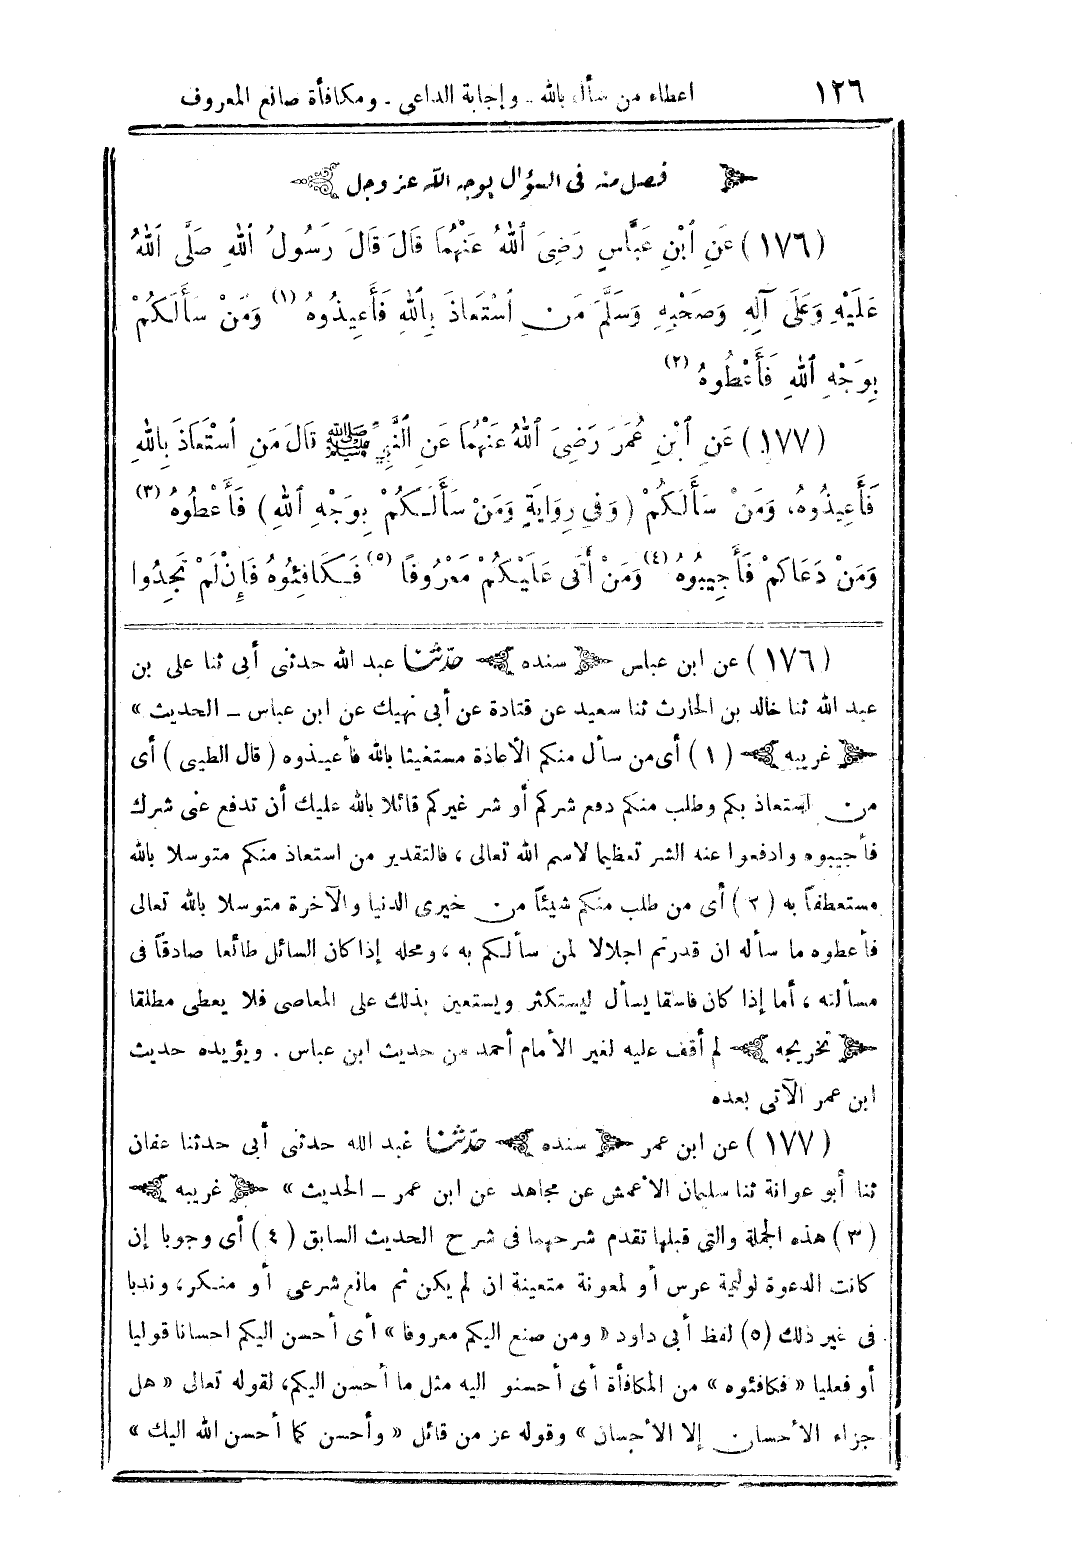 ١٢٦ اعطاء من سأل بالله - وإجابة الداعى - ومكافأة صانع المعروف
فصل منه فى السؤال بوجه الله عز وجل
(١٧٦) عَنِ ٱبْنِ عَبَّاسٍ رَضِىَ ٱللهُ عَنْهُمَا قَالَ قَالَ رَسُولُ ٱللهِ صَلَّى ٱللهُ
عَلَيْهِ وَعَلَى آلِهِ وَصَحْبِهِ وَسَلَّمَ مَنِ ٱسْتَعَاذَ بِٱللهِ فَأَعِيذُوهُ (١) وَمَنْ سَأَلَكُمْ
بِوَجْهِ ٱللهِ فَأَعْطُوهُ (٢)
(١٧٧) عَنِ ٱبْنِ عُمَرَ رَضِىَ ٱللهُ عَنْهُمَا عَنِ ٱلنَّبِىِّ ﷺ قَالَ مَنِ ٱسْتَعَاذَ بِٱللهِ
فَأَعِيذُوهُ، وَمَنْ سَأَلَكُمْ (وَفِى رِوَايَةٍ وَمَنْ سَأَلَكُمْ بِوَجْهِ ٱللهِ) فَأَعْطُوهُ (٣)
وَمَنْ دَعَاكُمْ فَأَجِيبُوهُ (٤) وَمَنْ أَتَى عَلَيْكُمْ مَعْرُوفًا (٥) فَكَافِئُوهُ فَإِنْ لَمْ تَجِدُوا
(١٧٦) عن ابن عباس سنده حدّثنا عبد الله حدثنى أبى ثنا على بن
عبد الله ثنا خالد بن الحارث ثنا سعيد عن قتادة عن أبى نهيك عن ابن عباس ـ الحديث »
غريبه (١) أى من سأل منكم الأعاذة مستغيثا بالله فأعيذوه (قال الطيبى) أى
من استعاذ بكم وطلب منكم دفع شركم أو شر غيركم قائلا بالله عليك أن تدفع عنى شرك
فأجيبوه وادفعوا عنه الشر تعظيما لاسم الله تعالى، فالتقدير من استعاذ منكم متوسلا بالله
مستعطفاً به (٢) أى من طلب منكم شيئاً من خيرى الدنيا والآخرة متوسلا بالله تعالى
فأعطوه ما سأله ان قدرتم اجلالا لمن سألكم به، ومحله إذا كان السائل طائعا صادقاً فى
مسألته، أما إذا كان فاسقا يسأل ليستكثر ويستعين بذلك على المعاصى فلا يعطى مطلقا
تخريجه لم أقف عليه لغير الأمام أحمد من حديث ابن عباس . ويؤيده حديث
ابن عمر الآتى بعده
(١٧٧) عن ابن عمر سنده حدّثنا عبد الله حدثنى أبى حدثنا عفان
ثنا أبو عوانة ثنا سليمان الأعمش عن مجاهد عن ابن عمر ـ الحديث » غريبه
(٣) هذه الجملة والتى قبلها تقدم شرحهما فى شرح الحديث السابق (٤) أى وجوبا إن
كانت الدعوة لوليمة عرس أو لمعونة متعينة ان لم يكن ثم مانع شرعى أو منكر، وندبا
فى غير ذلك (٥) لفظ أبى داود « ومن صنع اليكم معروفا » أى أحسن اليكم احسانا قوليا
أو فعليا « فكافئوه » من المكافأة أى أحسنو اليه مثل ما أحسن اليكم، لقوله تعالى « هل
جزاء الأحسان إلا الأحسان » وقوله عز من قائل « وأحسن كما أحسن الله اليك »